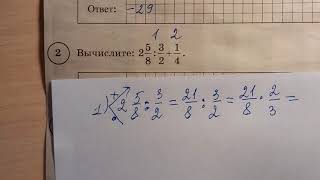 Ответ: -29
1 2
2 Вычислите: 2 5/8 : 3/2 + 1/4.
1) 2 5/8 : 3/2 = 21/8 : 3/2 = 21/8 · 2/3 =